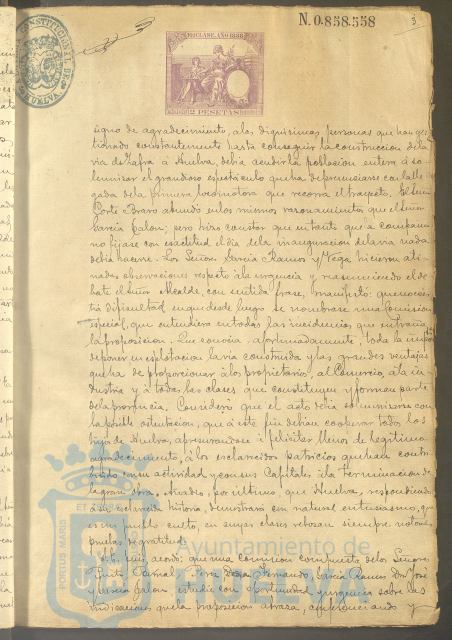 N. 0.858.558
3
10ª CLASE. AÑO 1888
2 PESETAS
CONSTITUCIONAL DE
HUELVA
signo de agradecimiento, a las dignisimas personas que han ges
tionado constantemente hasta conseguir la construccion de la
via de Zafra á Huelva, debia acudir la poblacion entera á so-
lemnizar el grandioso espectáculo que ha de presenciarse con la lle-
gada de la primera locomotora que recorra el trayecto. El Señor
Corte Bravo abundó en los mismos razonamientos que el Señor
Garcia Jalon; pero hizo constar que en tanto que la compañia
no fijase con esactitud el dia de la inauguracion de la via nada
debia hacerse. Los Señores Garcia Ramos y Vega hicieron ati-
nadas observaciones respeto á la urgencia y resumiendo el de
bate el Señor Alcalde, con sentida frase, manifestó: que no ecsis
tia dificultad en que desde luego se nombrase una Comision
especial, que entendiera en todas las incidencias que entraña
la proposicion. Que conocia, afortunadamente, toda la impor
de poner en esplotacion la via construida y las grandes ventajas
que ha de proporcionar á los propietarios, al Comercio, á la in-
dustria y á todas las clases que constituyen y forman parte
de la provincia. Consideró que el acto debia solemnizarse con
la posible ostentacion, que á este fin debian cooperar todos los
hijos de Huelva, apresurandose á felicitar llenos de legitimo
agradecimiento, á los esclarecidos patricios que han contri
buido con su actividad y con sus Capitales, á la terminacion de
la gran obra. Añadió, por ultimo, que Huelva, respondiendo
á su esclarecida historia, demostrará su natural entusiasmo, que
es un pueblo culto, en cuyas clases rebosan siempre nobles
pruebas de gratitud.
acordó que una comision compuesta de los Señores
Garcia Ramos Don José
y Garcia Jalon, estudie con oportunidad y urgencia sobre las
indicaciones que la proposicion abraza, y
PORTUS MARIS ET
Ayuntamiento de
HUELVA